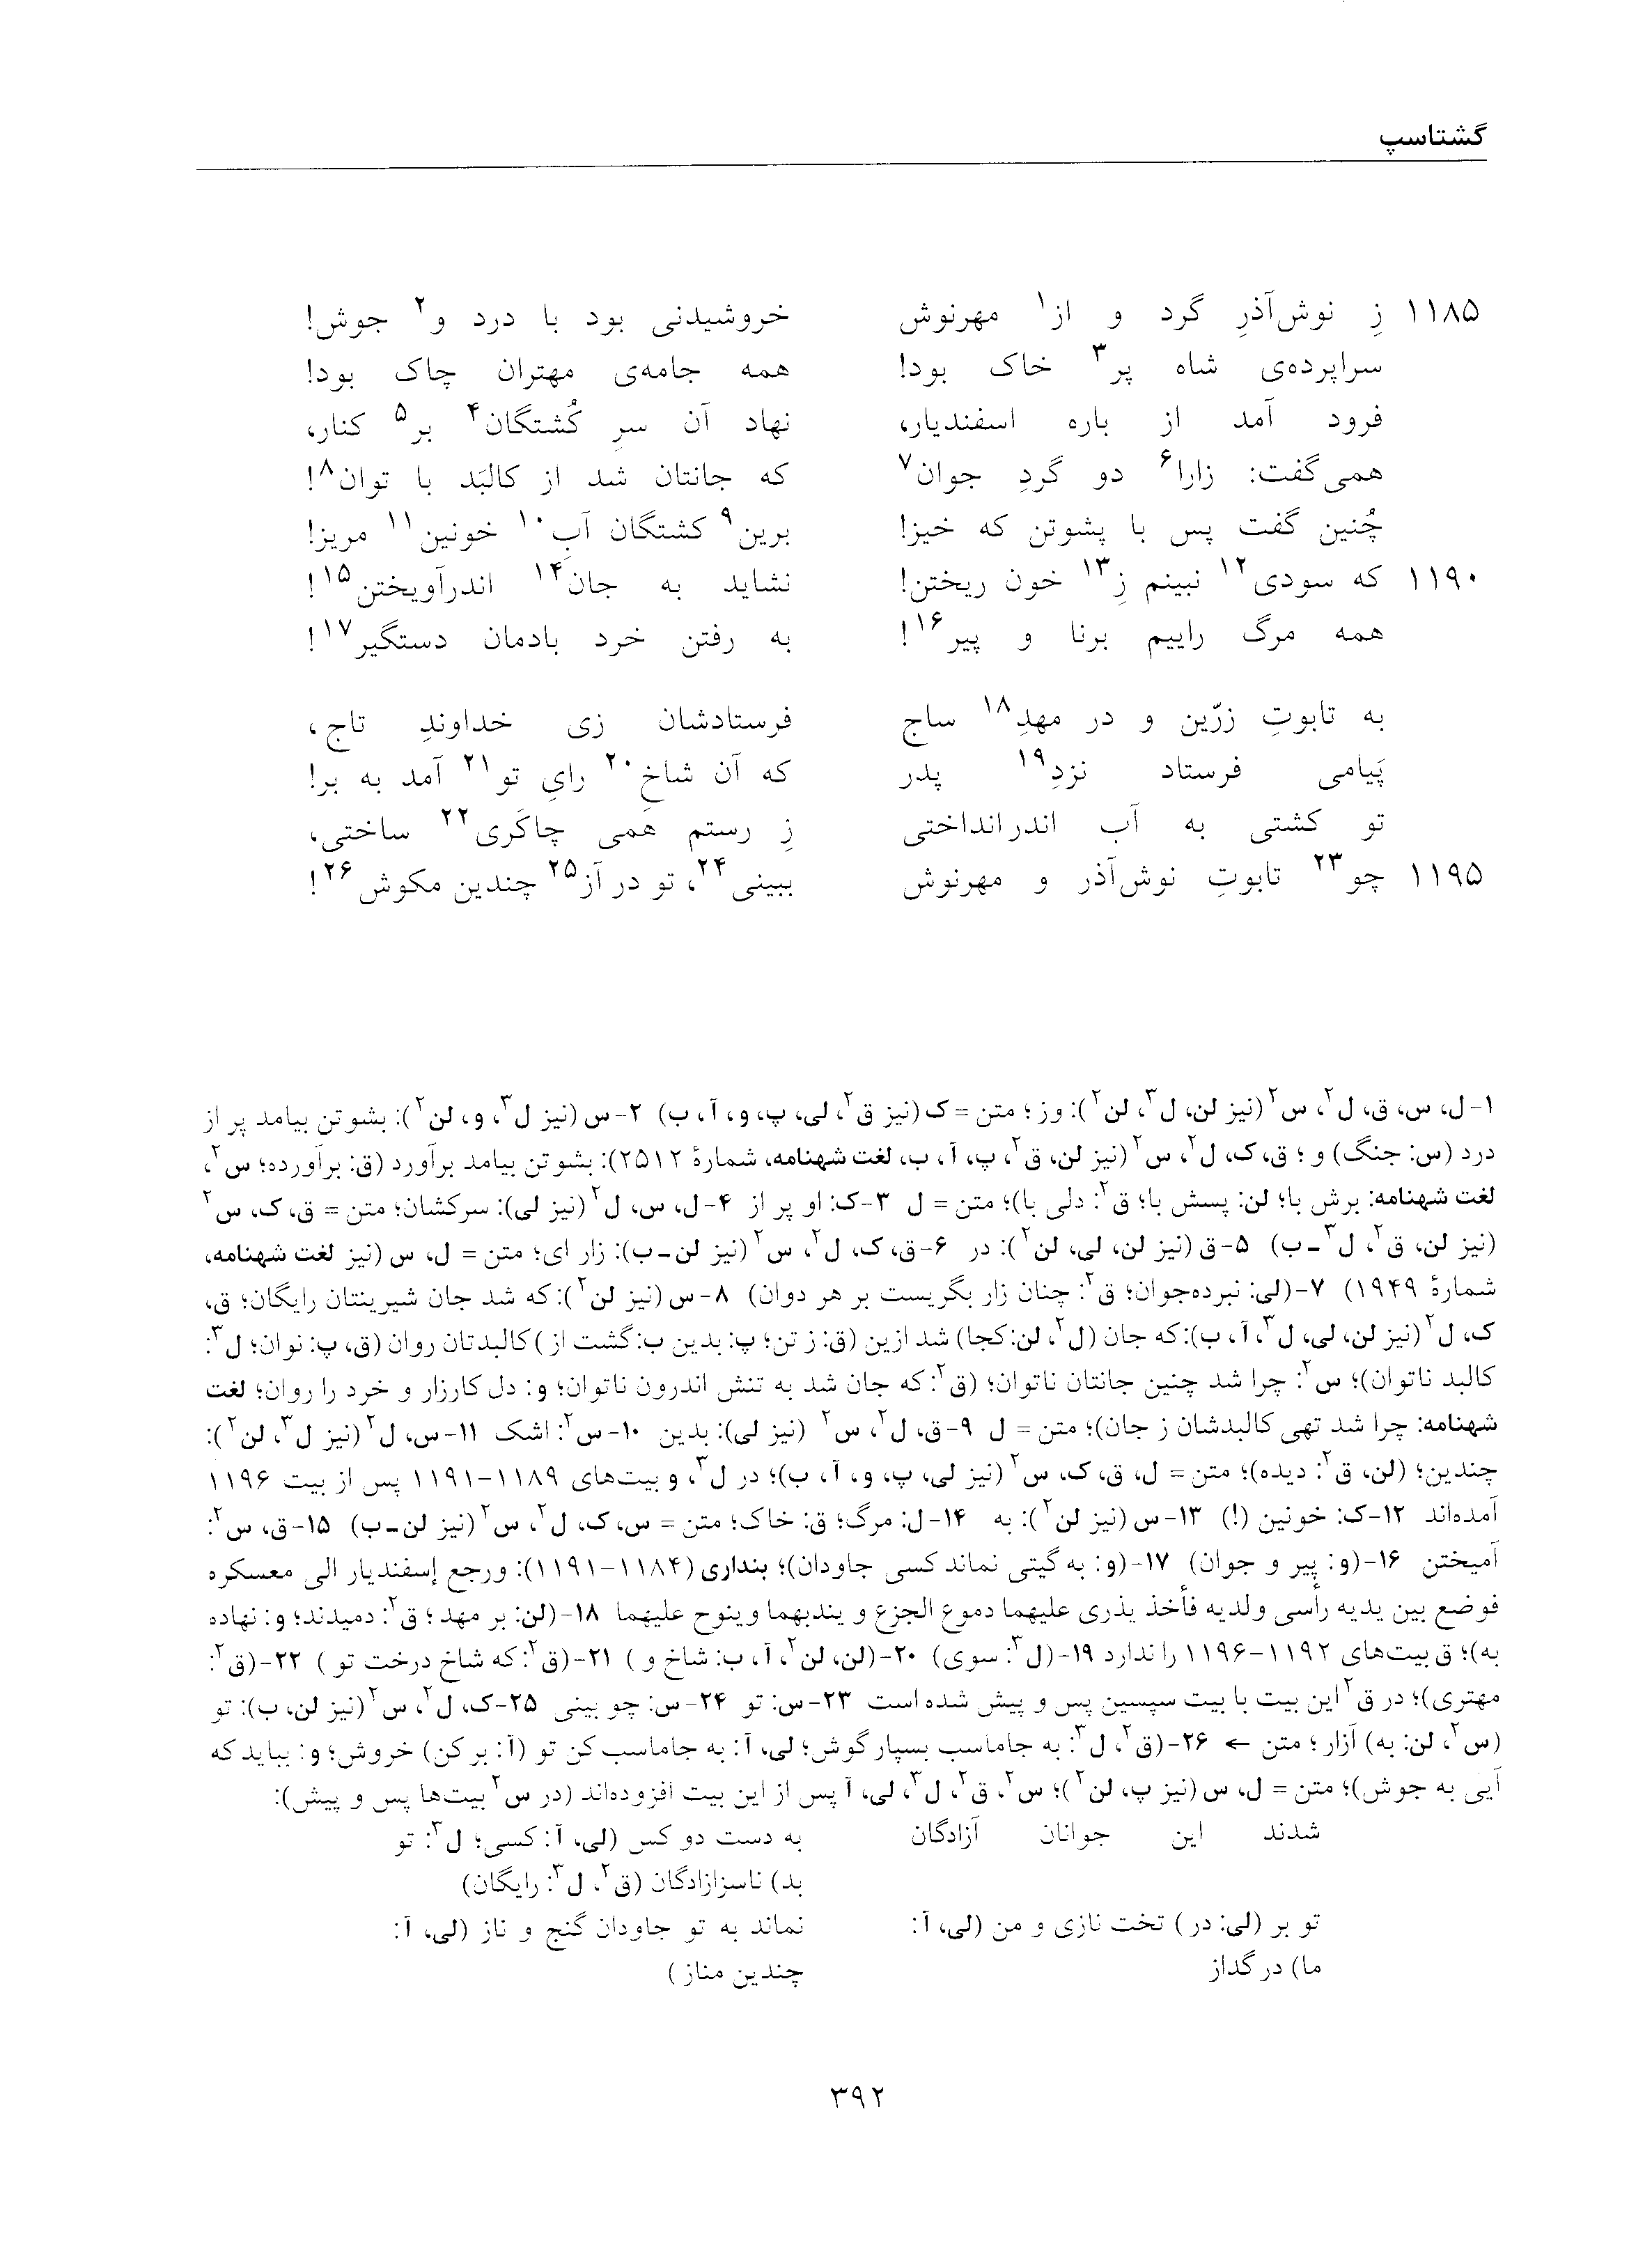 گشتاسپ
۱۱۸۵ زِ نوش‌آذرِ گرد و از۱ مهرنوش خروشیدنی بود با درد و۲ جوش!
سراپرده‌ی شاه پر۳ خاک بود! همه جامه‌ی مهتران چاک بود!
فرود آمد از باره اسفندیار، نهاد آن سرِ کُشتگان۴ بر۵ کنار،
همی‌گفت: زارا۶ دو گردِ جوان۷ که جانتان شد از کالبَد با توان۸!
چُنین گفت پس با پشوتن که خیز! برین۹ کشتگان آبِ۱۰ خونین۱۱ مریز!
۱۱۹۰ که سودی۱۲ نبینم زِ۱۳ خون ریختن! نشاید به جان۱۴ اندرآویختن۱۵!
همه مرگ راییم برنا و پیر۱۶! به رفتن خرد بادمان دستگیر۱۷!
به تابوتِ زرّین و در مهدِ۱۸ ساج فرستادشان زی خداوندِ تاج،
پَیامی فرستاد نزدِ۱۹ پدر که آن شاخِ۲۰ رایِ تو۲۱ آمد به بر!
تو کشتی به آب اندرانداختی زِ رستم همی چاکَری۲۲ ساختی،
۱۱۹۵ چو۲۳ تابوتِ نوش‌آذر و مهرنوش ببینی۲۴، تو در آز۲۵ چندین مکوش۲۶!
۱-ل، س، ق، ل۲، س۲ (نیز لن، ل۳، لن۲): وز؛ متن = ک (نیز ق۲، لی، پ، و، آ، ب) ۲-س (نیز ل۳، و، لن۲): بشوتن بیامد پر از
درد (س: جنگ) و؛ ق، ک، ل۲، س۲ (نیز لن، ق۲، پ، آ، ب، لغت شهنامه، شمارهٔ ۲۵۱۲): بشوتن بیامد برآورد (ق: برآورده؛ س۲،
لغت شهنامه: برش با؛ لن: پسش با؛ ق۲: دلی با)؛ متن = ل ۳-ک: او پر از ۴-ل، س، ل۲ (نیز لی): سرکشان؛ متن = ق، ک، س۲
(نیز لن، ق۲، ل۳ـب) ۵-ق (نیز لن، لی، لن۲): در ۶-ق، ک، ل۲، س۲ (نیز لن-ب): زار ای؛ متن = ل، س (نیز لغت شهنامه،
شمارهٔ ۱۹۴۹) ۷-(لی: نبرده‌جوان؛ ق۲: چنان زار بگریست بر هر دوان) ۸-س (نیز لن۲): که شد جان شیرینتان رایگان؛ ق،
ک، ل۲ (نیز لن، لی، ل۳، آ، ب): که جان (ل۲، لن: کجا) شد ازین (ق: ز تن؛ پ: بدین ب: گشت از) کالبدتان روان (ق، پ: نوان؛ ل۳:
کالبد ناتوان)؛ س۲: چرا شد چنین جانتان ناتوان؛ (ق۲: که جان شد به تنش اندرون ناتوان؛ و: دل کارزار و خرد را روان؛ لغت
شهنامه: چرا شد تهی کالبدشان ز جان)؛ متن = ل ۹-ق، ل۲، س۲ (نیز لی): بدین ۱۰-س۲: اشک ۱۱-س، ل۲ (نیز ل۳، لن۲):
چندین؛ (لن، ق۲: دیده)؛ متن = ل، ق، ک، س۲ (نیز لی، پ، و، آ، ب)؛ در ل۳، و بیت‌های ۱۱۸۹-۱۱۹۱ پس از بیت ۱۱۹۶
آمده‌اند ۱۲-ک: خونین (!) ۱۳-س (نیز لن۲): به ۱۴-ل: مرگ؛ ق: خاک؛ متن = س، ک، ل۲، س۲ (نیز لن-ب) ۱۵-ق، س۲:
آمیختن ۱۶-(و: پیر و جوان) ۱۷-(و: به گیتی نماند کسی جاودان)؛ بنداری (۱۱۸۴-۱۱۹۱): ورجع إسفندیار الی معسکره
فوضع بین یدیه رأسی ولدیه فأخذ یذری علیهما دموع الجزع و یندبهما وینوح علیهما ۱۸-(لن: بر مهد؛ ق۲: دمیدند؛ و: نهاده
به)؛ ق بیت‌های ۱۱۹۲-۱۱۹۶ را ندارد ۱۹-(ل۳: سوی) ۲۰-(لن، لن۲، آ، ب: شاخ و) ۲۱-(ق۲: که شاخ درخت تو) ۲۲-(ق۲:
مهتری)؛ در ق۲ این بیت با بیت سپسین پس و پیش شده است ۲۳-س: تو ۲۴-س: چو بینی ۲۵-ک، ل۲، س۲ (نیز لن، ب): تو
(س۲، لن: به) آزار؛ متن ← ۲۶-(ق۲، ل۳: به جاماسب بسپار گوش؛ لی، آ: به جاماسب کن تو (آ: بر کن) خروش؛ و: بباید که
آیی به جوش)؛ متن = ل، س (نیز پ، لن۲)؛ س۲، ق۲، ل۳، لی، آ پس از این بیت افزوده‌اند (در س۲ بیت‌ها پس و پیش):
شدند این جوانان آزادگان به دست دو کس (لی، آ: کسی؛ ل۳: تو
بد) ناسزازادگان (ق۲، ل۳: رایگان)
تو بر (لی: در) تخت نازی و من (لی، آ: نماند به تو جاودان گنج و ناز (لی، آ:
ما) در گداز چندین مناز)
۳۹۲